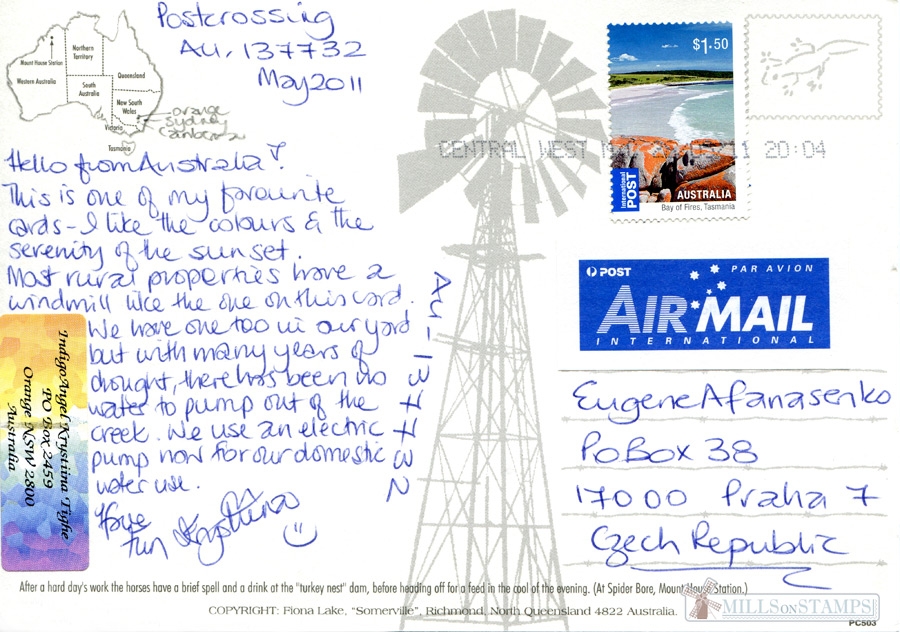 Postcrossing
AU, 137732
May 2011
Mount House Station
Northern
Territory
Western Australia
Queensland
South
Australia
New South
Wales
Victoria
Tasmania
orange
sydney
canberra
Hello from Australia!
This is one of my favourite
cards - I like the colours & the
serenity of the sunset.
Most rural properties have a
windmill like the one on this card.
We have one too in our yard
but with many years of
drought, there has been no
water to pump out of the
creek. We use an electric
pump now for our domestic
water use.
Have
fun Krystiina
AU-137732
IndigoAngel Krystiina Tighe
PO Box 2459
Orange NSW 2800
Australia
$1.50
International
POST
AUSTRALIA
Bay of Fires, Tasmania
CENTRAL WEST
20:04
POST
PAR AVION
AIR MAIL
INTERNATIONAL
Eugene Afanasenko
PO Box 38
17000 Praha 7
Czech Republic
After a hard day's work the horses have a brief spell and a drink at the "turkey nest" dam, before heading off for a feed in the cool of the evening. (At Spider Bore, Mount House Station.)
COPYRIGHT: Fiona Lake, "Somerville", Richmond, North Queensland 4822 Australia.
MILLSONSTAMPS
PC503